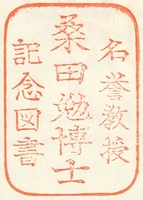 名誉教授
桑田勉博士
記念図書